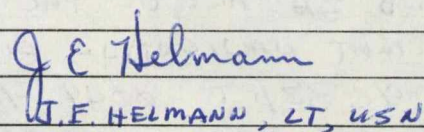 J E Helmann
J.E. HELMANN, LT, USN